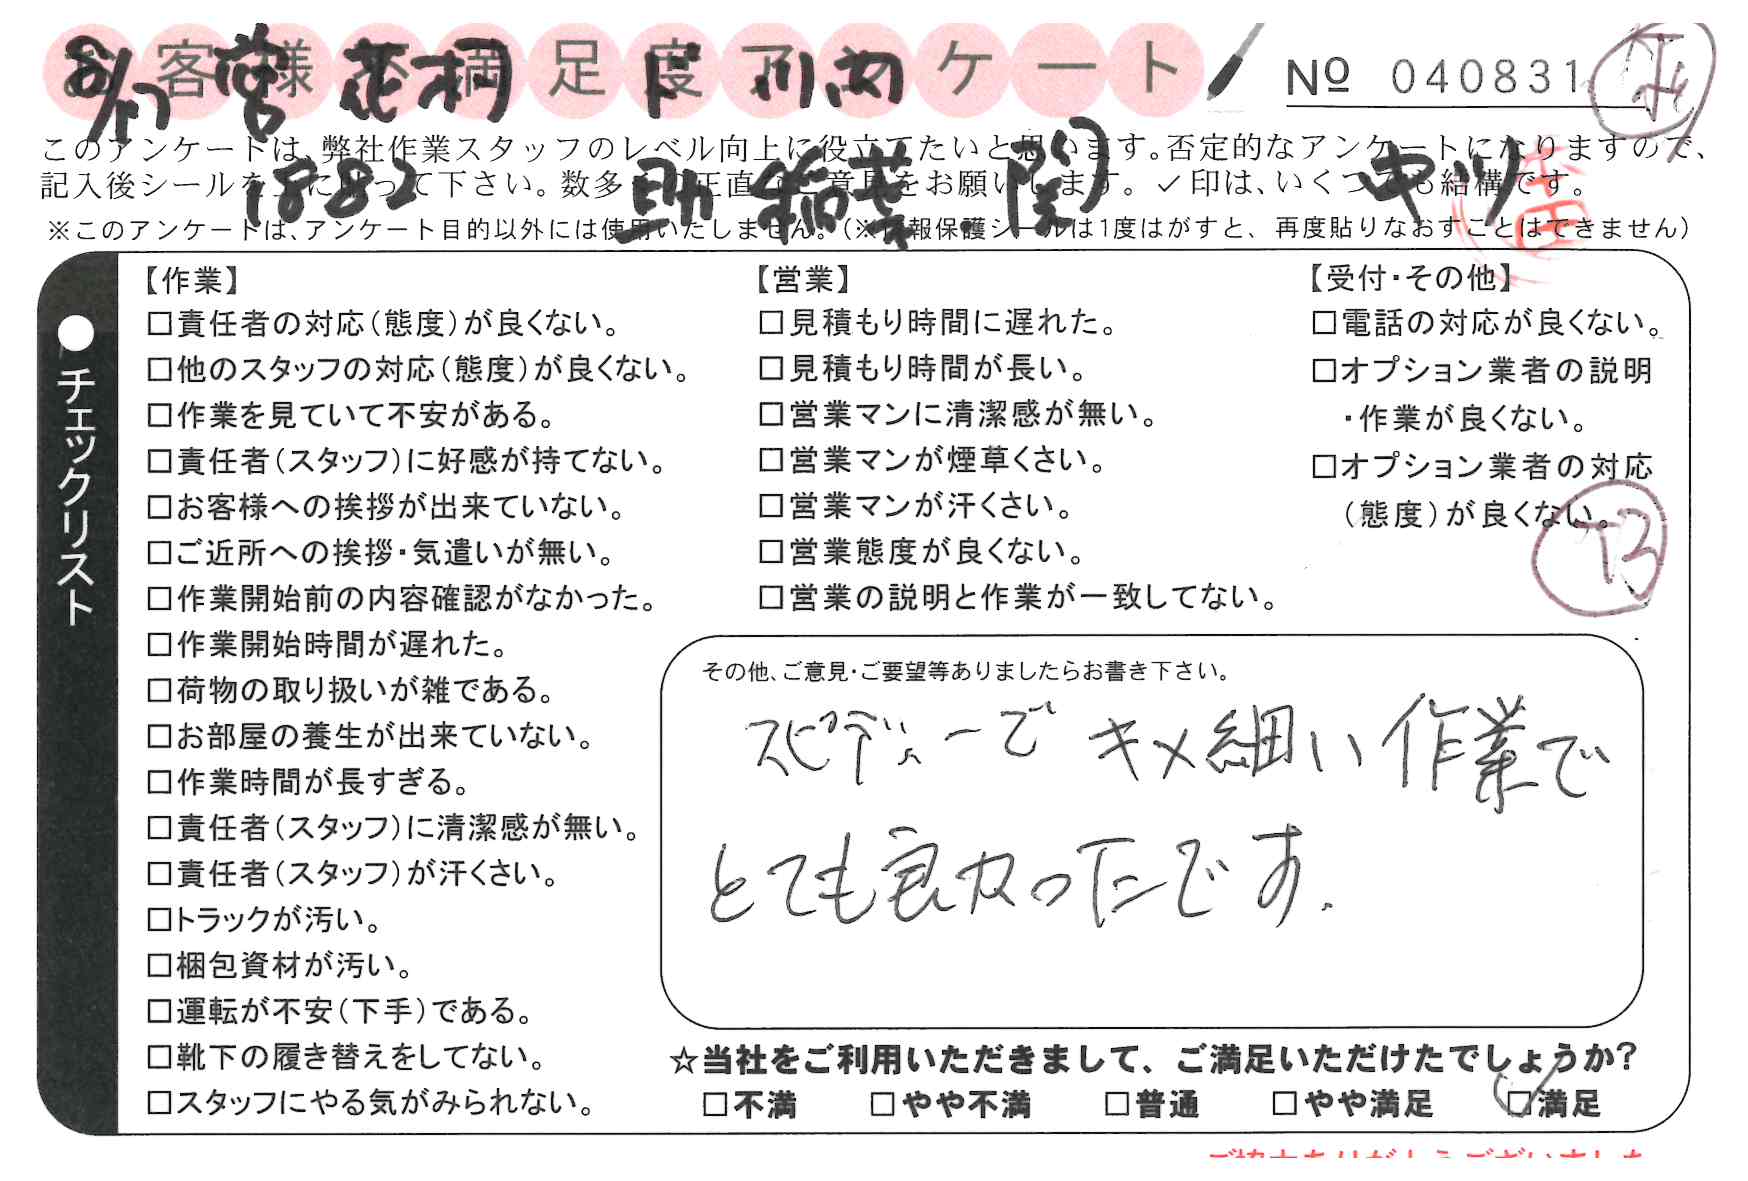 お客様不満足度アンケート
№ 040831
8/17 営 花桐 ド 川西
このアンケートは、弊社作業スタッフのレベル向上に役立てたいと思います。否定的なアンケートになりますので、
記入後シールを上に貼って下さい。数多くの正直なご意見をお願いします。✓印は、いくつでも結構です。
1882 助 稲葉 関 中川
※このアンケートは、アンケート目的以外には使用いたしません。(※情報保護シールは1度はがすと、再度貼りなおすことはできません)
●チェックリスト
【作業】
□責任者の対応(態度)が良くない。
□他のスタッフの対応(態度)が良くない。
□作業を見ていて不安がある。
□責任者(スタッフ)に好感が持てない。
□お客様への挨拶が出来ていない。
□ご近所への挨拶・気遣いが無い。
□作業開始前の内容確認がなかった。
□作業開始時間が遅れた。
□荷物の取り扱いが雑である。
□お部屋の養生が出来ていない。
□作業時間が長すぎる。
□責任者(スタッフ)に清潔感が無い。
□責任者(スタッフ)が汗くさい。
□トラックが汚い。
□梱包資材が汚い。
□運転が不安(下手)である。
□靴下の履き替えをしてない。
□スタッフにやる気がみられない。
【営業】
□見積もり時間に遅れた。
□見積もり時間が長い。
□営業マンに清潔感が無い。
□営業マンが煙草くさい。
□営業マンが汗くさい。
□営業態度が良くない。
□営業の説明と作業が一致してない。
【受付・その他】
□電話の対応が良くない。
□オプション業者の説明
・作業が良くない。
□オプション業者の対応
(態度)が良くない。
その他、ご意見・ご要望等ありましたらお書き下さい。
スピディーで キメ細い 作業で
とても良かったです.
☆当社をご利用いただきまして、ご満足いただけたでしょうか?
□不満 □やや不満 □普通 □やや満足 ☑満足
ご協力ありがとうございました